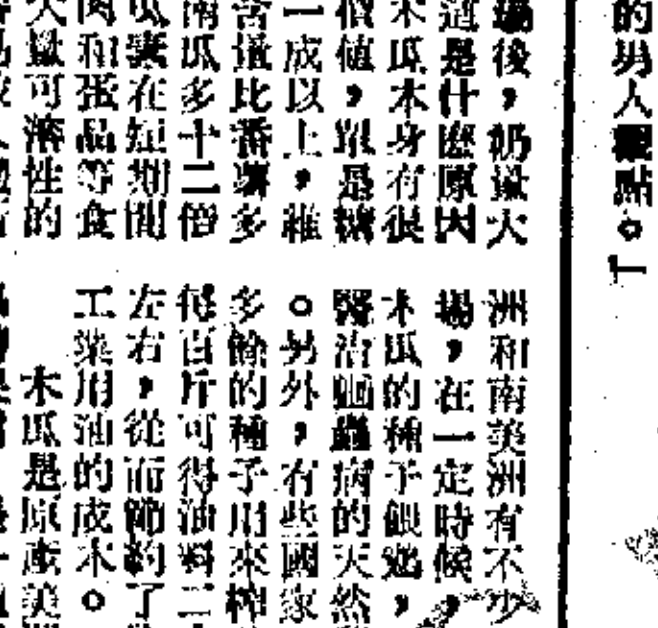 的男人觀點。」
場後，奶量大
道是什麼原因
木瓜本身有很
價值，單是糖
一成以上，維
含量比番多
南瓜多十二倍
瓜在短期間
肉和蛋品等食
大量可溶性的
洲和南美洲有不少
場，在一定時候，
木瓜的種子餵，
醫治蛔蟲病的天然
。另外，有些國家
多餘的種子用來榨
每百斤可得油料二
左右，從而節約了
工業用油的成本。
木瓜是原產美